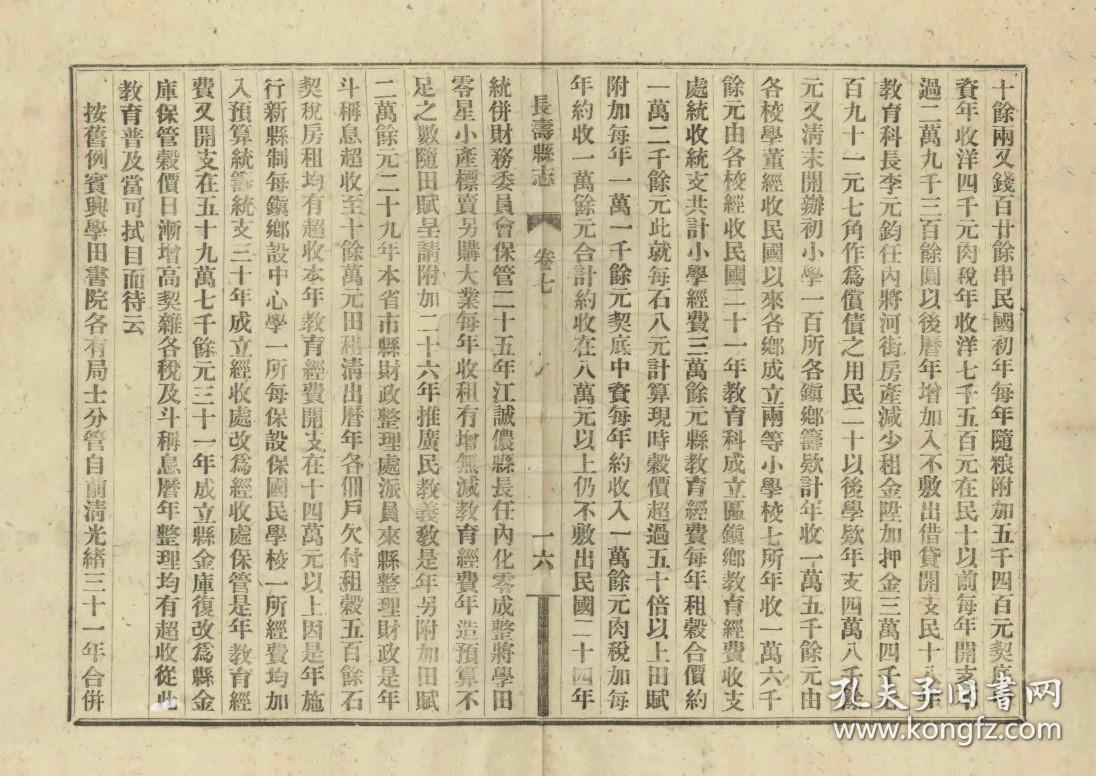 十餘兩又錢百廿餘串民國初年每年隨粮附加五千四百元契底
資年收洋四千元肉稅年收洋七千五百元在民十以前每年開支
過二萬九千三百餘圓以後曆年增加入不敷出借貸開支民十
教育科長李元鈞任內將河街房產減少租金陞加押金三萬四千
百九十一元七角作爲償債之用民二十以後學欵年支四萬八千餘
元又清末開辦初小學一百所各鎭鄉籌欵計年收一萬五千餘元由
各校學董經收民國以來各鄉成立兩等小學校七所年收一萬六千
餘元由各校經收民國二十一年教育科成立區鎭鄉教育經費收支
處統收統支共計小學經費三萬餘元縣教育經費每年租穀合價約
一萬二千餘元此就每石八元計算現時穀價超過五十倍以上田賦
附加每年一萬一千餘元契底中資每年約收入一萬餘元肉稅加每
年約收一萬餘元合計約收在八萬元以上仍不敷出民國二十四年
長壽縣志 卷七 一六
統併財務委員會保管二十五年江誠儂縣長任內化零成整將學田
零星小產標賣另購大業每年收租有增無減教育經費年造預算不
足之數隨田賦呈請附加二十六年推廣民教義教是年另附加田賦
二萬餘元二十九年本省市縣財政整理處派員來縣整理財政是年
斗稱息超收至十餘萬元田租清出曆年各佃戶欠付租穀五百餘石
契稅房租均有超收本年教育經費開支在十四萬元以上因是年施
行新縣制每鎭鄉設中心學一所每保設保國民學校一所經費均加
入預算統籌統支三十年成立經收處改爲經收處保管是年教育經
費又開支在五十九萬七千餘元三十一年成立縣金庫復改爲縣金
庫保管穀價日漸增高契雜各稅及斗稱息曆年整理均有超收從此
教育普及當可拭目而待云
按舊例賓興學田書院各有局士分管自前清光緒三十一年合併
孔夫子旧书网
www.kongfz.com